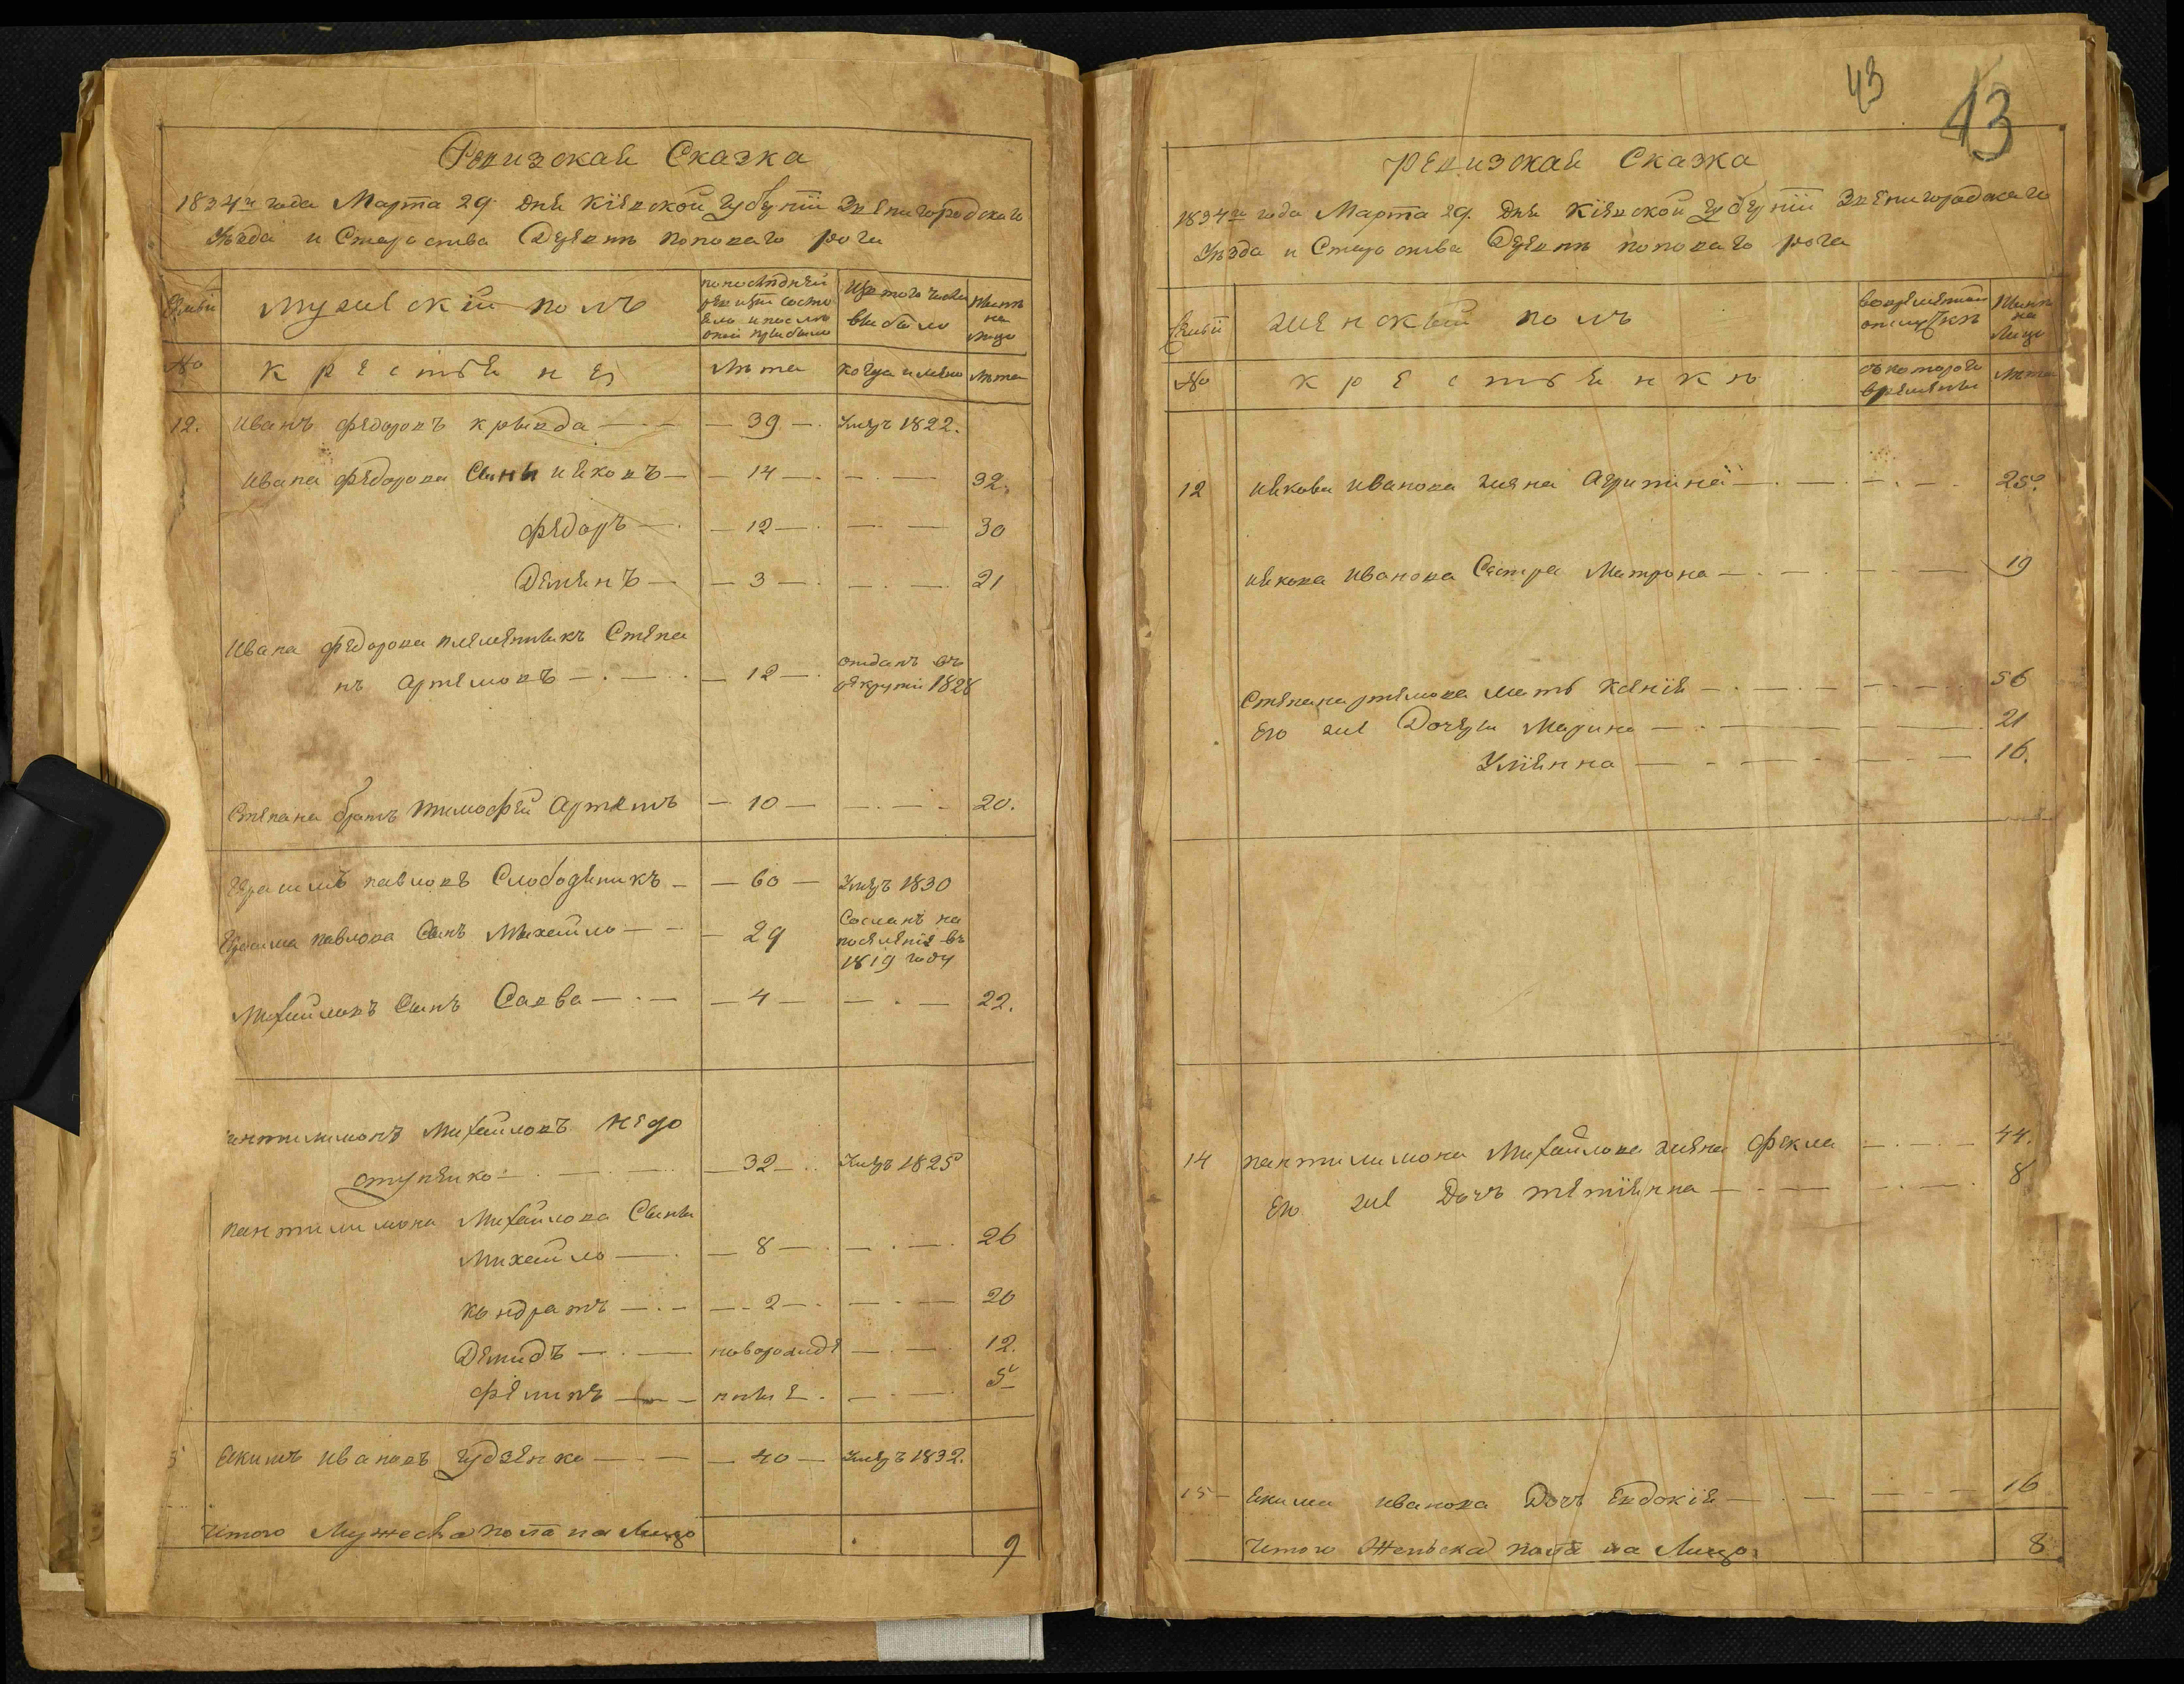 Ревизская Сказка
1834го года Марта 29 дня Кіевской Губерніи Звенигородского
Уезда и Староства Деревни поповаго рога
мужескій полъ
по последней ревизіи состояло и после оной прибыло
Изъ того числа выбыло
Ныне на лицо
№ крестьяне Лета когда имено Лета
12. Иванъ Федоровъ кривда — 39 — Умеръ 1822.
Ивана Федорова Сыны Яковъ — 14 — 32.
Федоръ — 12 — 30
Деменъ — 3 — 21
Ивана Федорова племенникъ Степа
нъ Артемовъ — 12 — отданъ въ рекруты 1828
Степана братъ тимофей Артемъ — 10 — 20.
Герасимъ павловъ Слободеникъ — 60 — Умеръ 1830
Герасима павлова Сынъ Михайло — 29 Сосланъ на поселеніе въ 1819 году
Михайловъ Сынъ Савва — 4 — 22.
пантилимонъ Михайловъ Недо
ступенко — 32 — Умеръ 1825
пантилимона Михайлова Сыны
Михайло — 8 — 26
кондратъ — 2 — 20
Демидъ — новорожде — 12.
Фелипъ — нные — 5
Екимъ Ивановъ Гудзенко — 40 — Умеръ 1832.
Итого Мужеска пола на Лицо 9
43
43
Ревизская Сказка
1834го года Марта 29. Дня Кіевской Губерніи Звенигородскаго
Уезда и Староства Деревни поповаго рога
Семьи
женскій полъ
во временной отлучке
Ныне на Лицо
№ крестьянки съ которого времени Лета
12 Якова Иванова жена Агрипина — 25.
Якова Иванова Сестра Матрона — 19
Степана ртемова мать Ксенія — 56
Его же Дочери Марина — 21
Уліянна — 16.
14 пантилимона Михайлова жена Фекла — 44.
Его же Дочь тетіянна — 8
15 Екима Иванова Дочь Евдокія — 16
Итого Женьска пола на Лицо 8